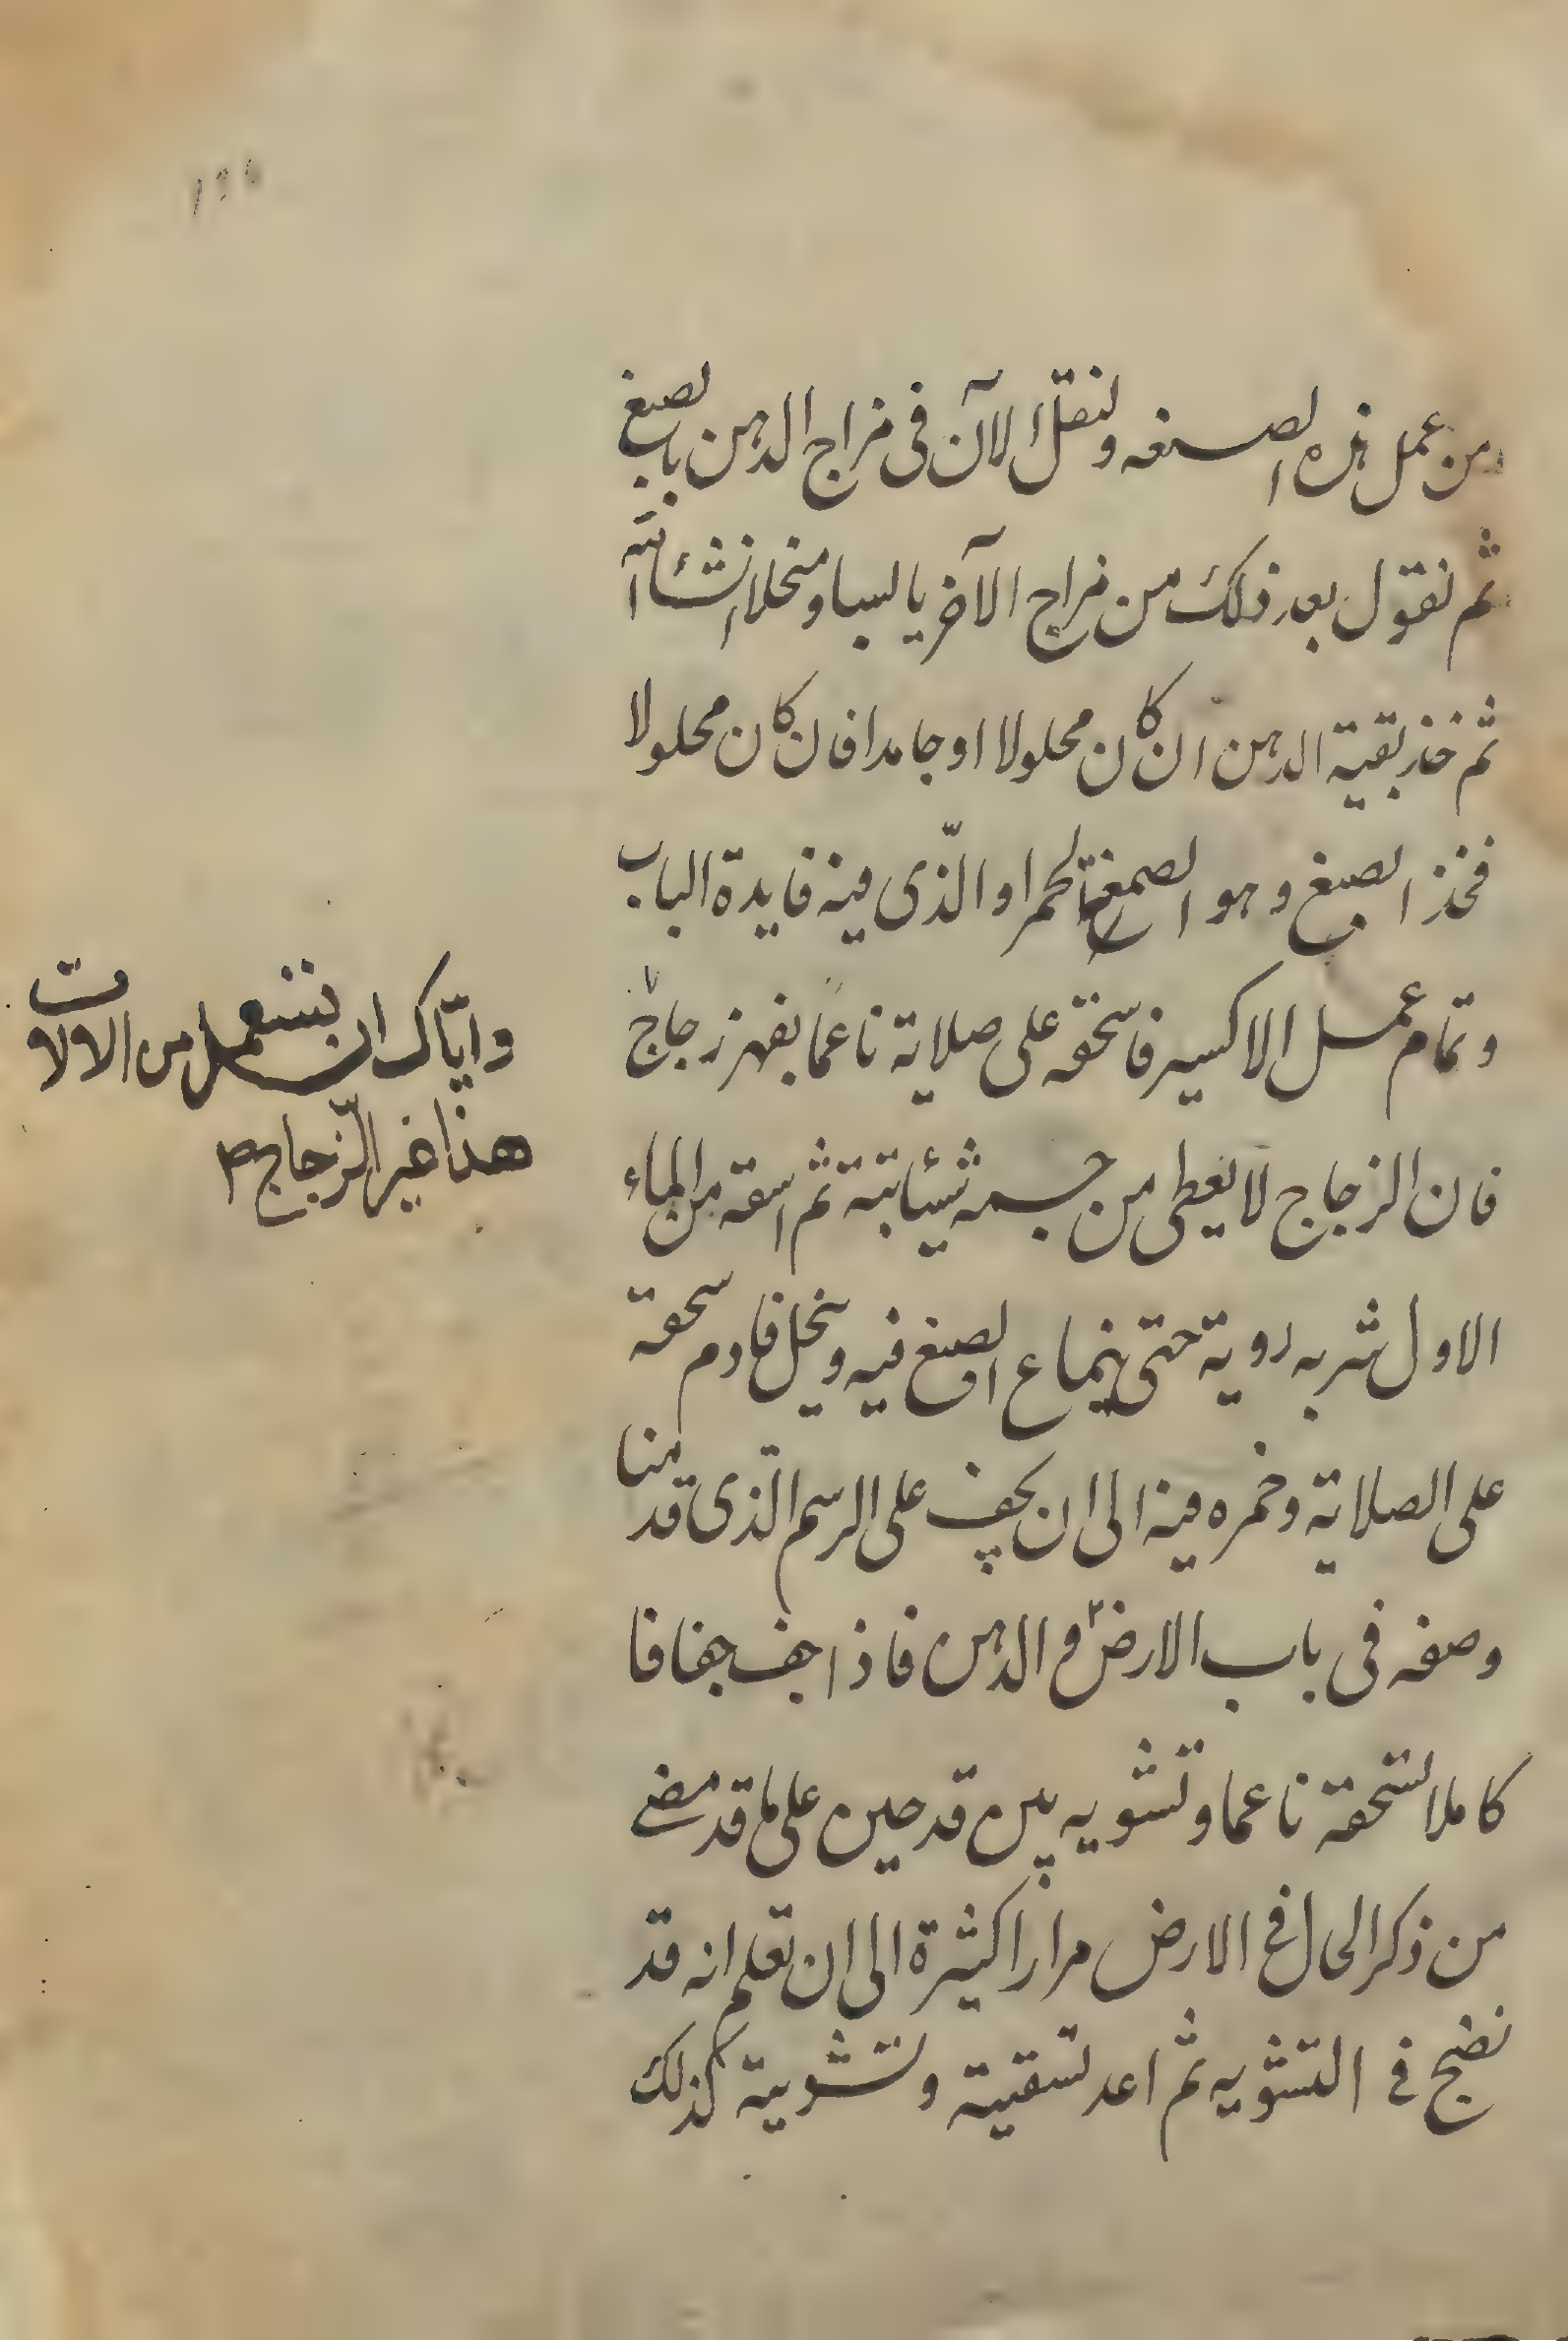 من عمل هذه الصنعه ولنقل الآن فى مزاج الدهن بالصبغ
ثم نقول بعد ذلك من مزاج الآخر يابسا ومنحلا انشأالله
ثم خذ بقية الدهن ان كان محلولا او جامدا فان كان محلولا
فخذ الصبغ وهو الصمغة الحمرا والّذى فيه فايدة الباب
وتمام عمل الاكسير فاسحقه على صلاية ناعما بفهر زجاج
فان الزجاج لا يعطى من جسمه شيئا بتة ثم اسقه من الماء
الاول شربه روية حتى ينماع الصبغ فيه وينحل فادم سحقه
على الصلاية وخمره فيه الى ان يجف على الرسم الّذى قدمنا
وصفه فى باب الارض و الدهن فاذا جف جفافا
كاملا لتسحقه ناعما وتشويه بين قدحين على ما قد مضى
من ذكر الارض مرارا كثيرة الى ان تعلم انه قد
نضج فى التشويه ثم اعد تسقيته وتشويته كذلك
وايّاك ان تستعمل من الالات
هذا غير الزّجاج